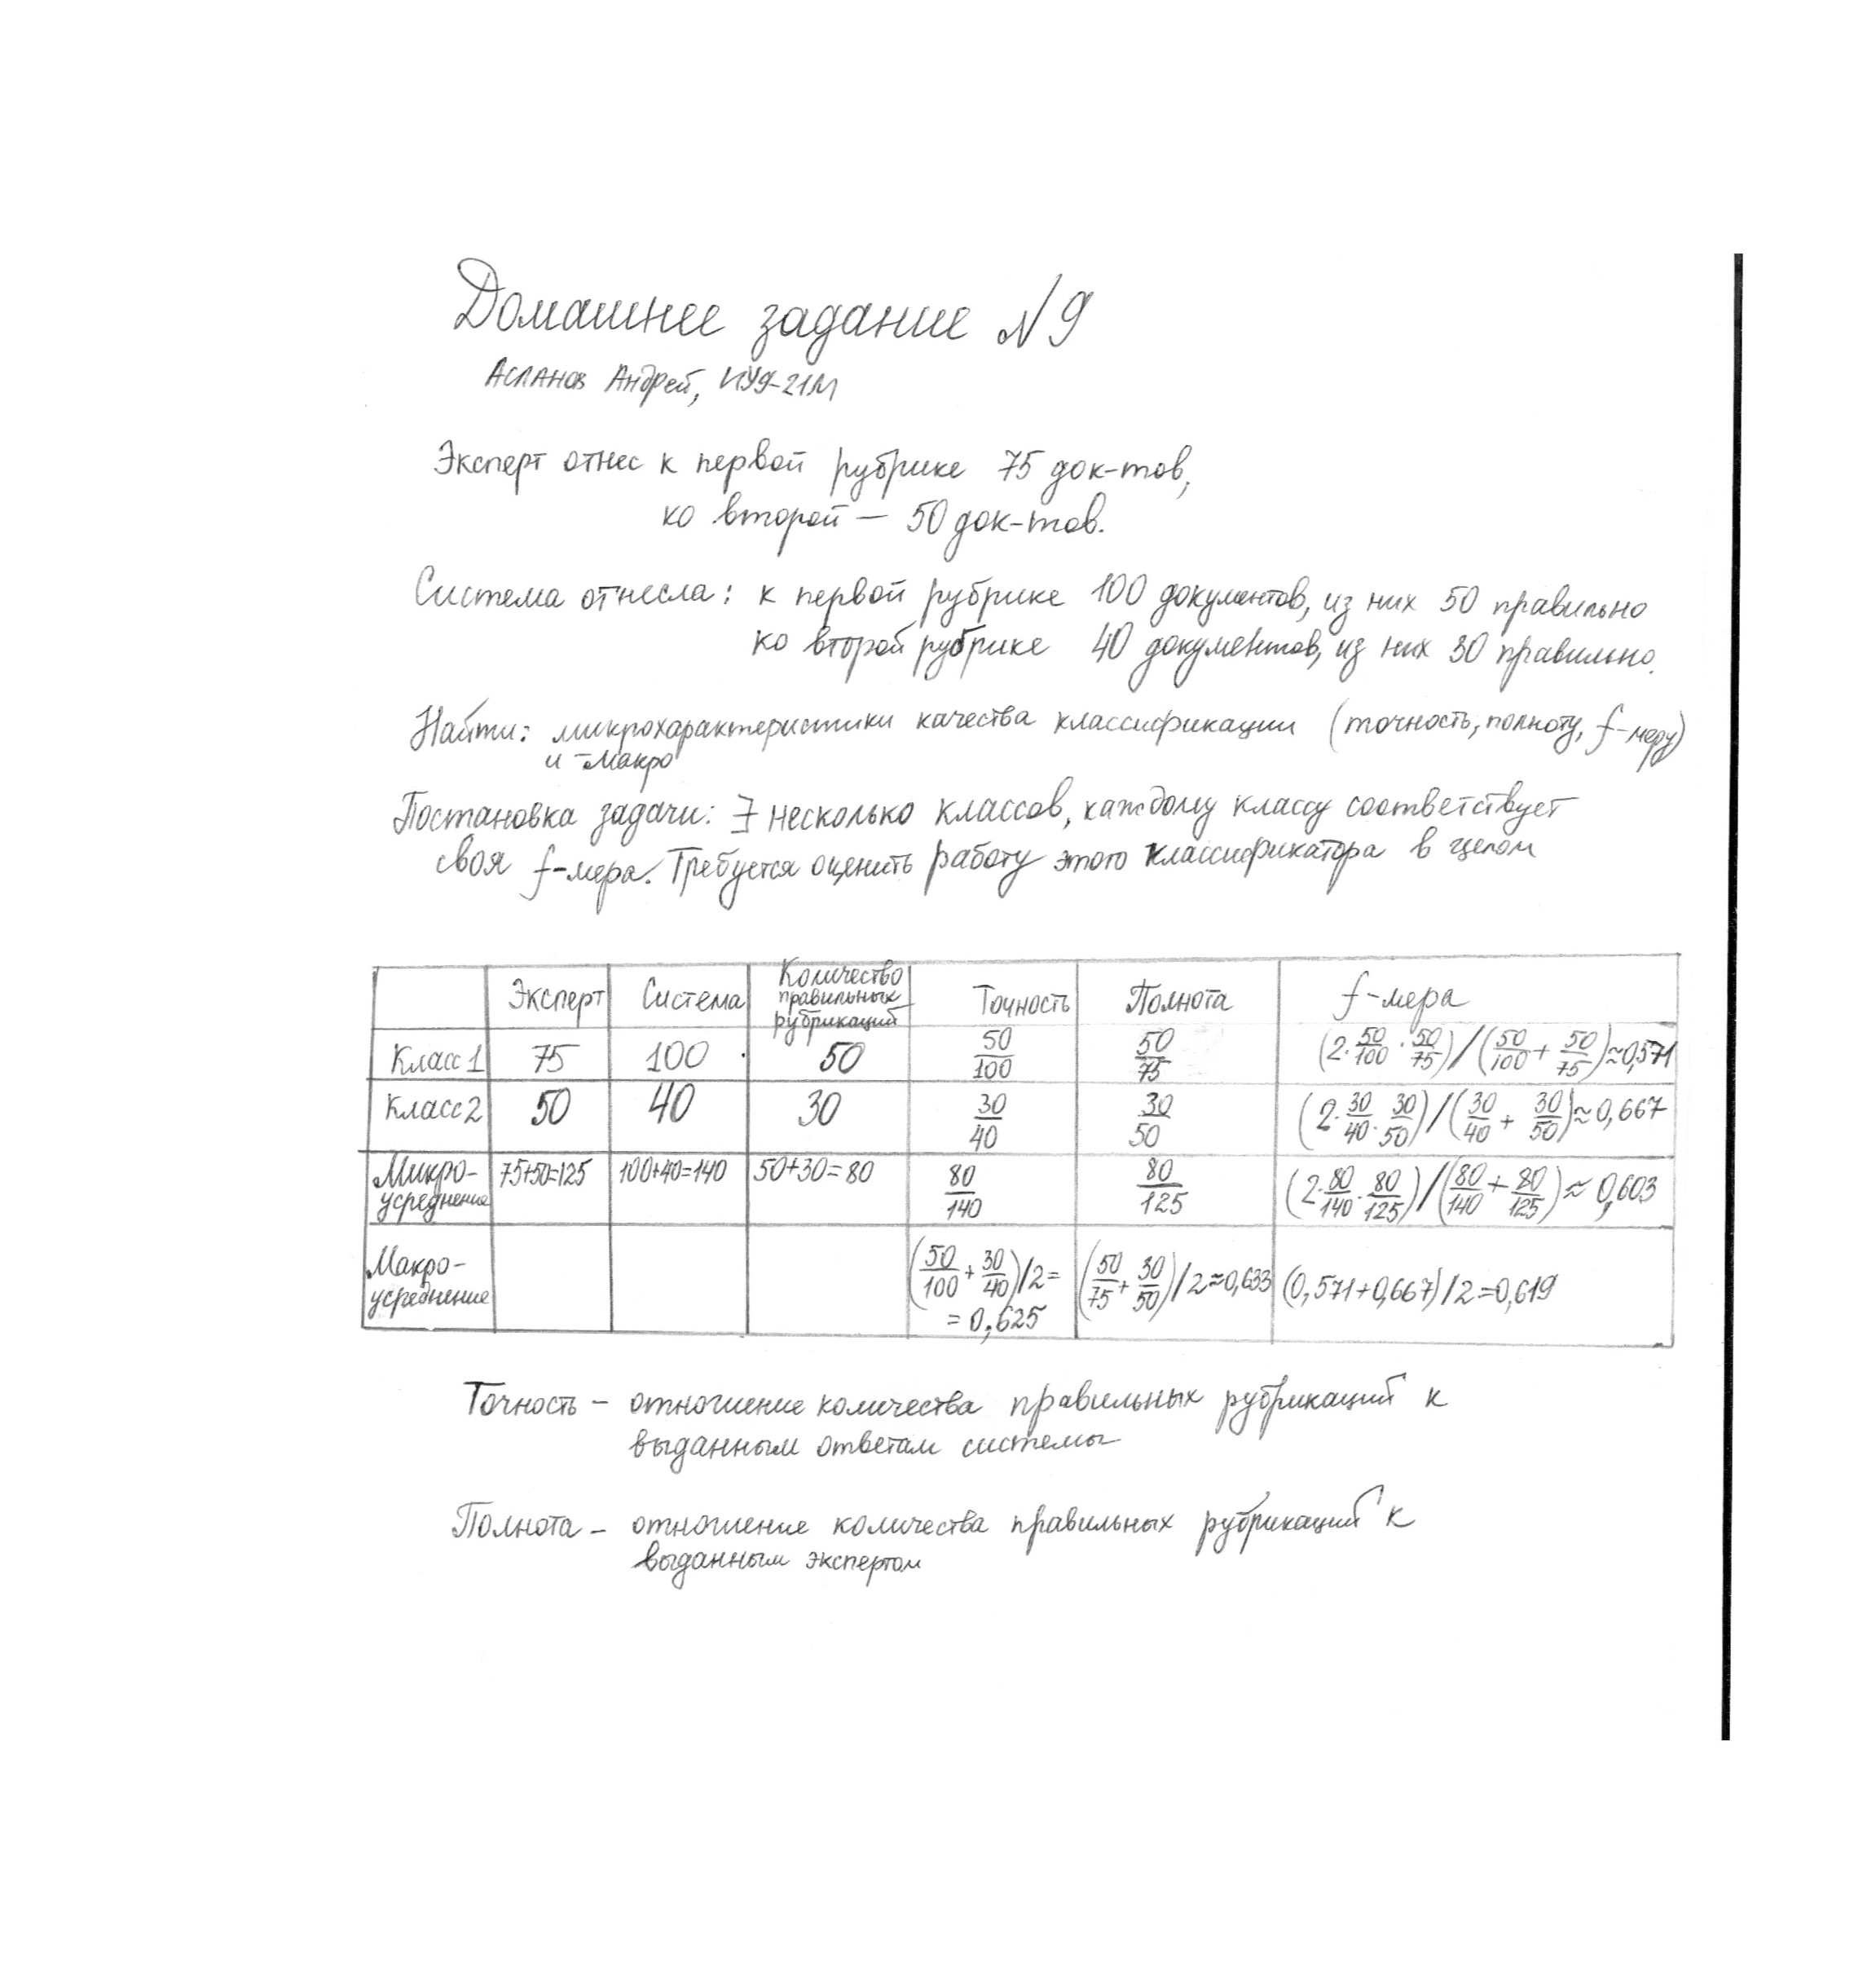 Домашнее задание №9
Асланов Андрей, ИУ9-21М
Эксперт отнес к первой рубрике 75 док-тов,
ко второй — 50 док-тов.
Система отнесла: к первой рубрике 100 документов, из них 50 правильно
ко второй рубрике 40 документов, из них 30 правильно.
Найти: микрохарактеристики качества классификации (точность, полноту, f-меру)
и -макро
Постановка задачи: ∃ несколько классов, каждому классу соответствует
своя f-мера. Требуется оценить работу этого классификатора в целом
Эксперт Система Количество правильных рубрикаций Точность Полнота f-мера
Класс 1 75 100 50 50/100 50/75 (2·50/100·50/75)/(50/100+50/75)≈0,571
Класс 2 50 40 30 30/40 30/50 (2·30/40·30/50)/(30/40+30/50)≈0,667
Микро-усреднение 75+50=125 100+40=140 50+30=80 80/140 80/125 (2·80/140·80/125)/(80/140+80/125)≈0,603
Макро-усреднение (50/100+30/40)/2==0,625 (50/75+30/50)/2≈0,633 (0,571+0,667)/2=0,619
Точность – отношение количества правильных рубрикаций к
выданным ответам системы
Полнота – отношение количества правильных рубрикаций к
выданным экспертом